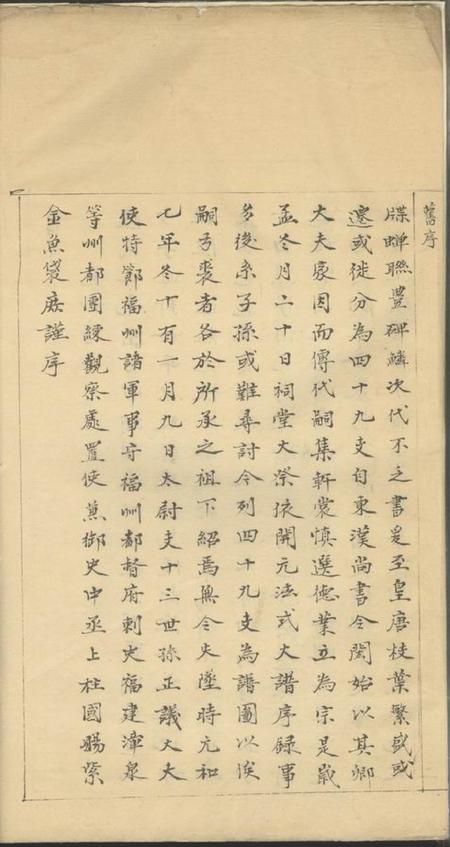 舊序
牒蟬聯豊碑麟次代不乏書爰至皇唐枝葉繁盛或
遷或徙分為四十九支自東漢尚書令閎始以其卿
大夫家因而傳代嗣集軒裳慎選德業立為宗是歲
孟冬月二十日祠堂大祭依開元法式大譜序錄事
多後系子孫或難尋討今列四十九支為譜圖以俟
嗣弓裘者各於所承之祖下紹焉無令失墜時元和
七年冬十有一月九日太尉支十三世孫正議大夫
使持節福州諸軍事守福州都督府刺史福建漳泉
等州都團練觀察處置使蒹御史中丞上柱國賜紫
金魚袋庶謹序